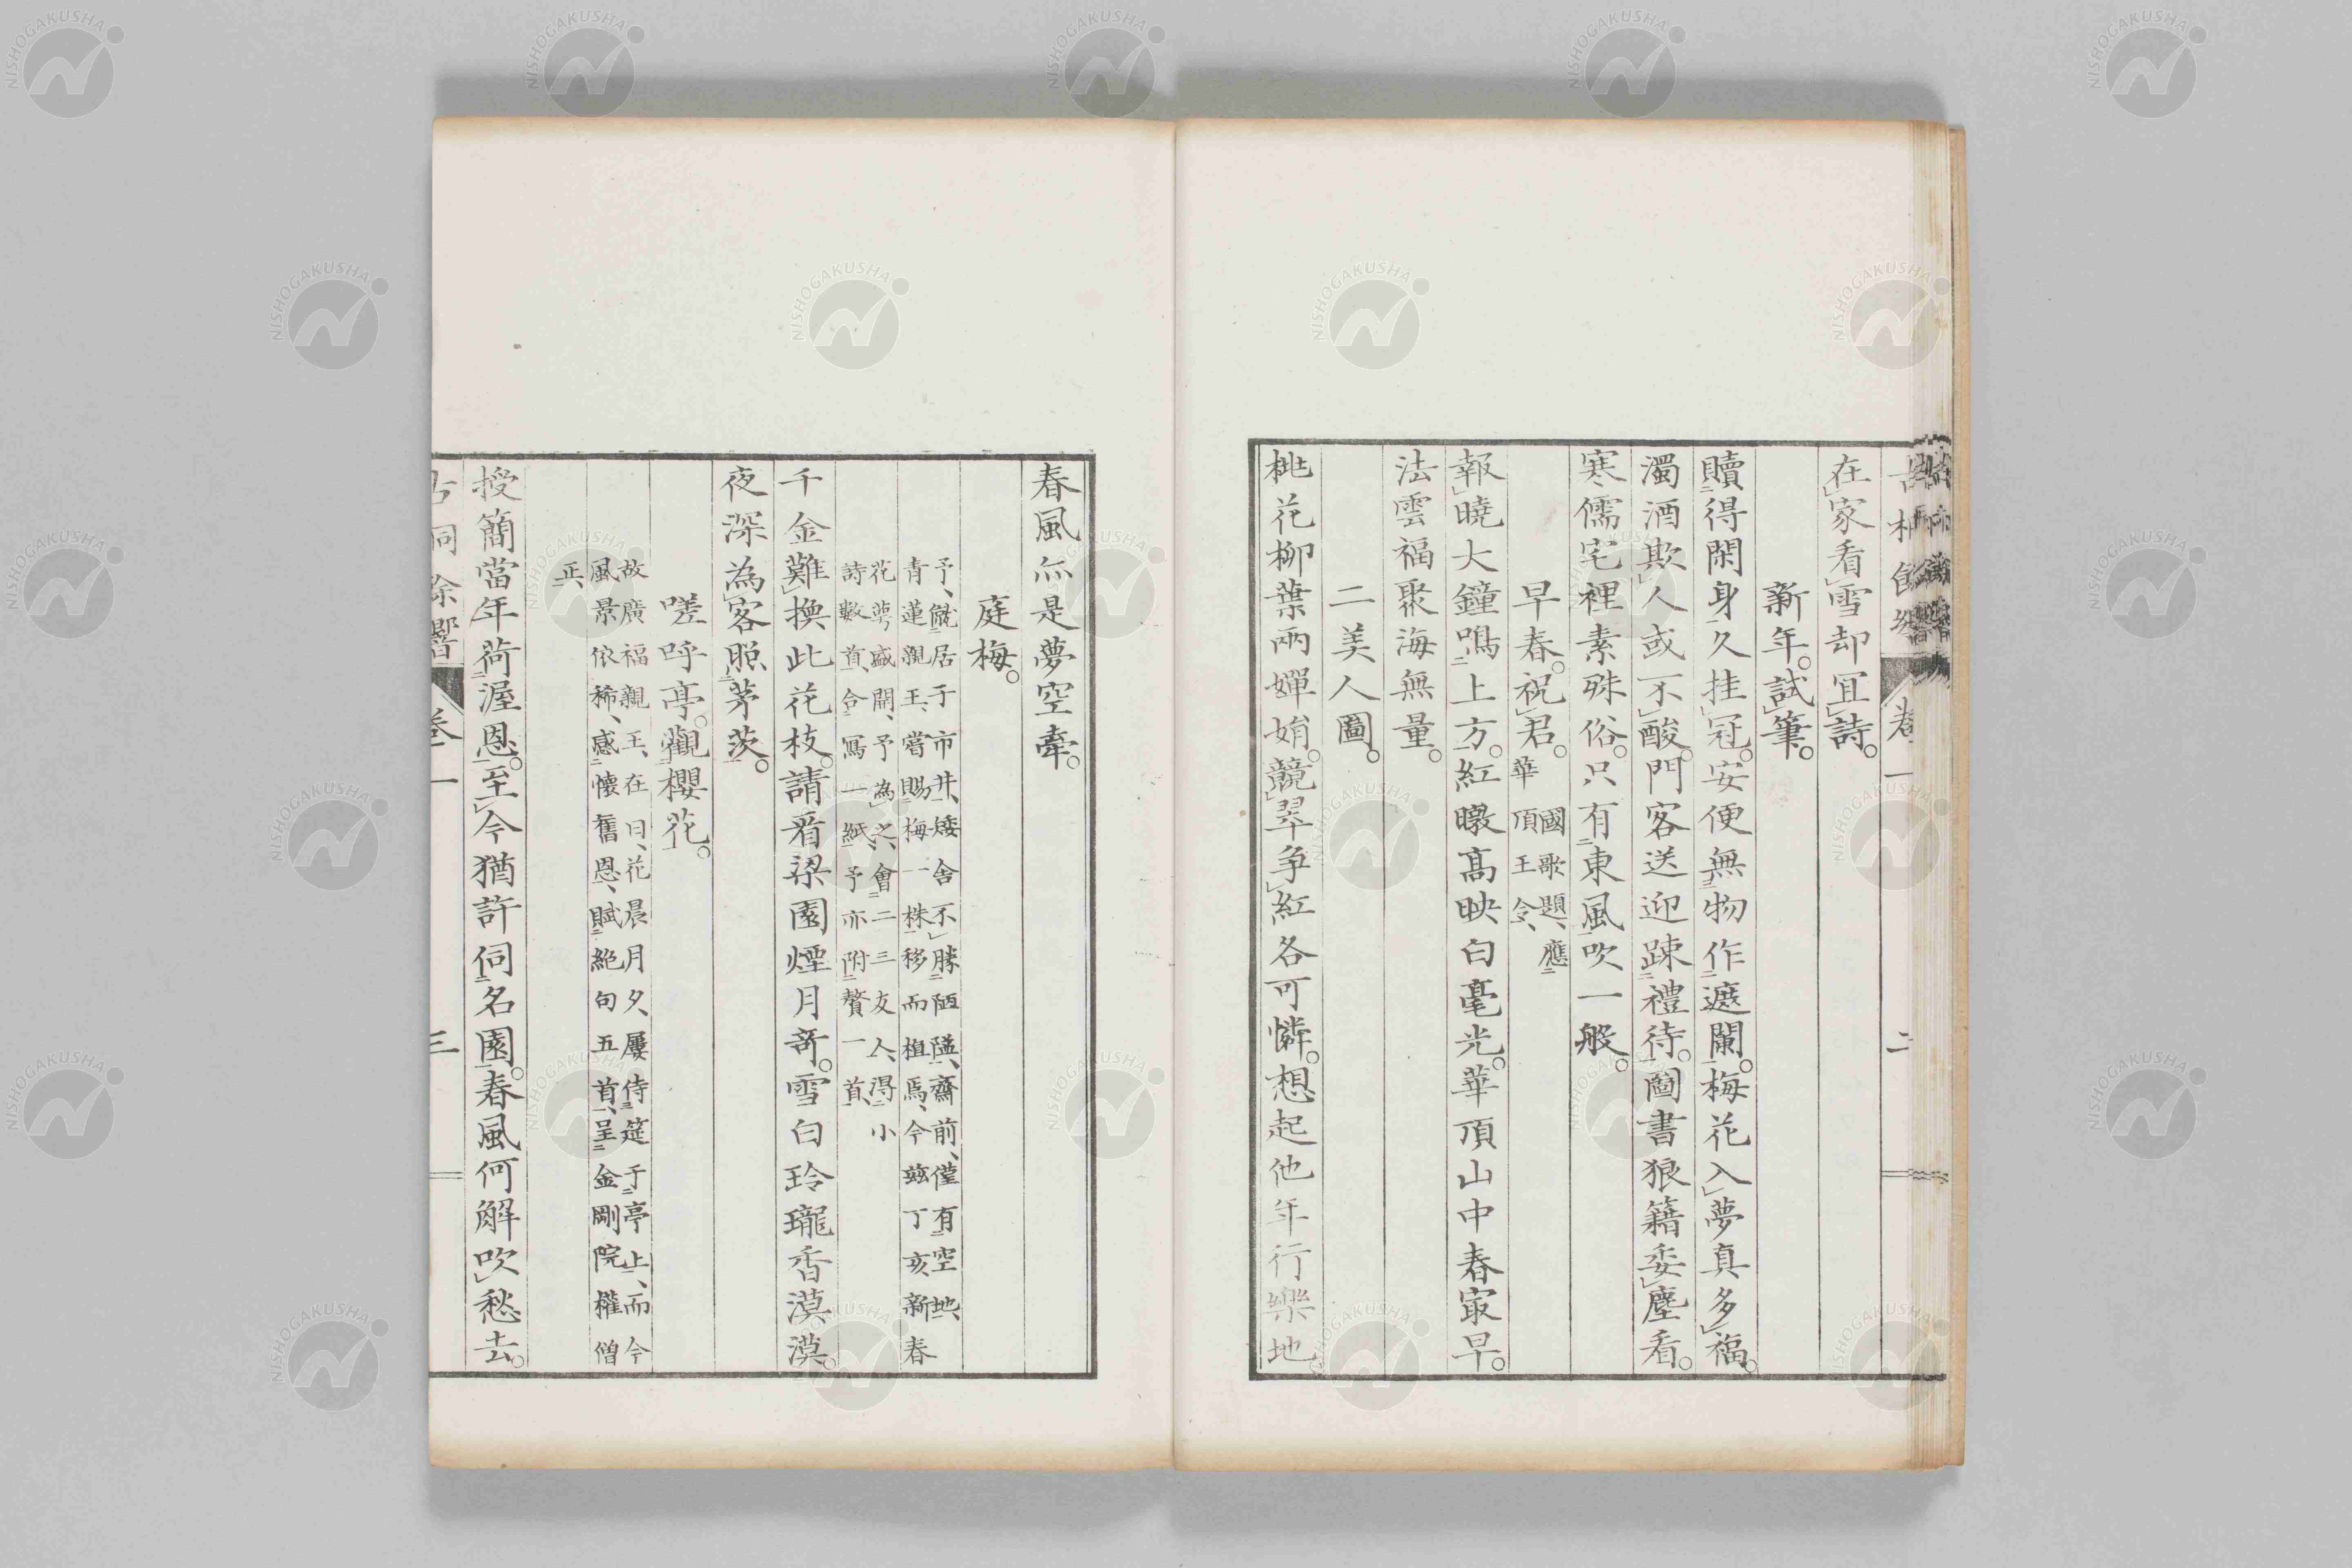 在家看雪却冝詩。
新年。試筆。
贖得閑身久挂冠。安便無物作遮闌。梅花入夢真多福。
濁酒欺人或不酸。門客送迎踈禮待。圖書狼籍委塵看。
寒儒宅裡素殊俗。只有東風吹一般。
早春。祝君。國歌題、應華頂王令、
報曉大鐘鳴上方。紅暾高映白毫光。華頂山中春㝡早。
法雲福聚海無量。
二美人圖。
桃花柳葉兩嬋娟。競翠爭紅各可憐。想起他年行樂地
春風亦是夢空牽。
庭梅。
予、僦居于市井、矮舍不勝陋隘、齋前、僅有空地、
青蓮親王、嘗賜梅一株、移而植焉、今玆丁亥、新春
花萼盛開、予為之、會二三友人、得小
詩數首、合寫一紙、予亦附贅一首、
千金難換此花枝。請看梁園煙月奇。雪白玲瓏香漠漠。
夜深為客照茅茨。
嗟呼亭。觀櫻花。
故廣福親王、在日、花晨月夕、屢侍筵于亭上、而今
風景依稀、感懷舊恩、賦絕句五首、呈金剛院權僧
正、
授簡當年荷渥恩。至今猶許伺名園。春風何解吹愁去。
卷一
三
NISHOGAKUSHA